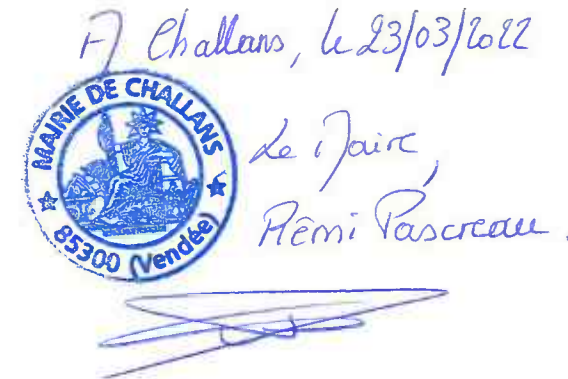 A Challans, le 23/03/2022
MAIRIE DE CHALLANS
85300 (Vendée)
Le Maire,
Rémi Pascreau.